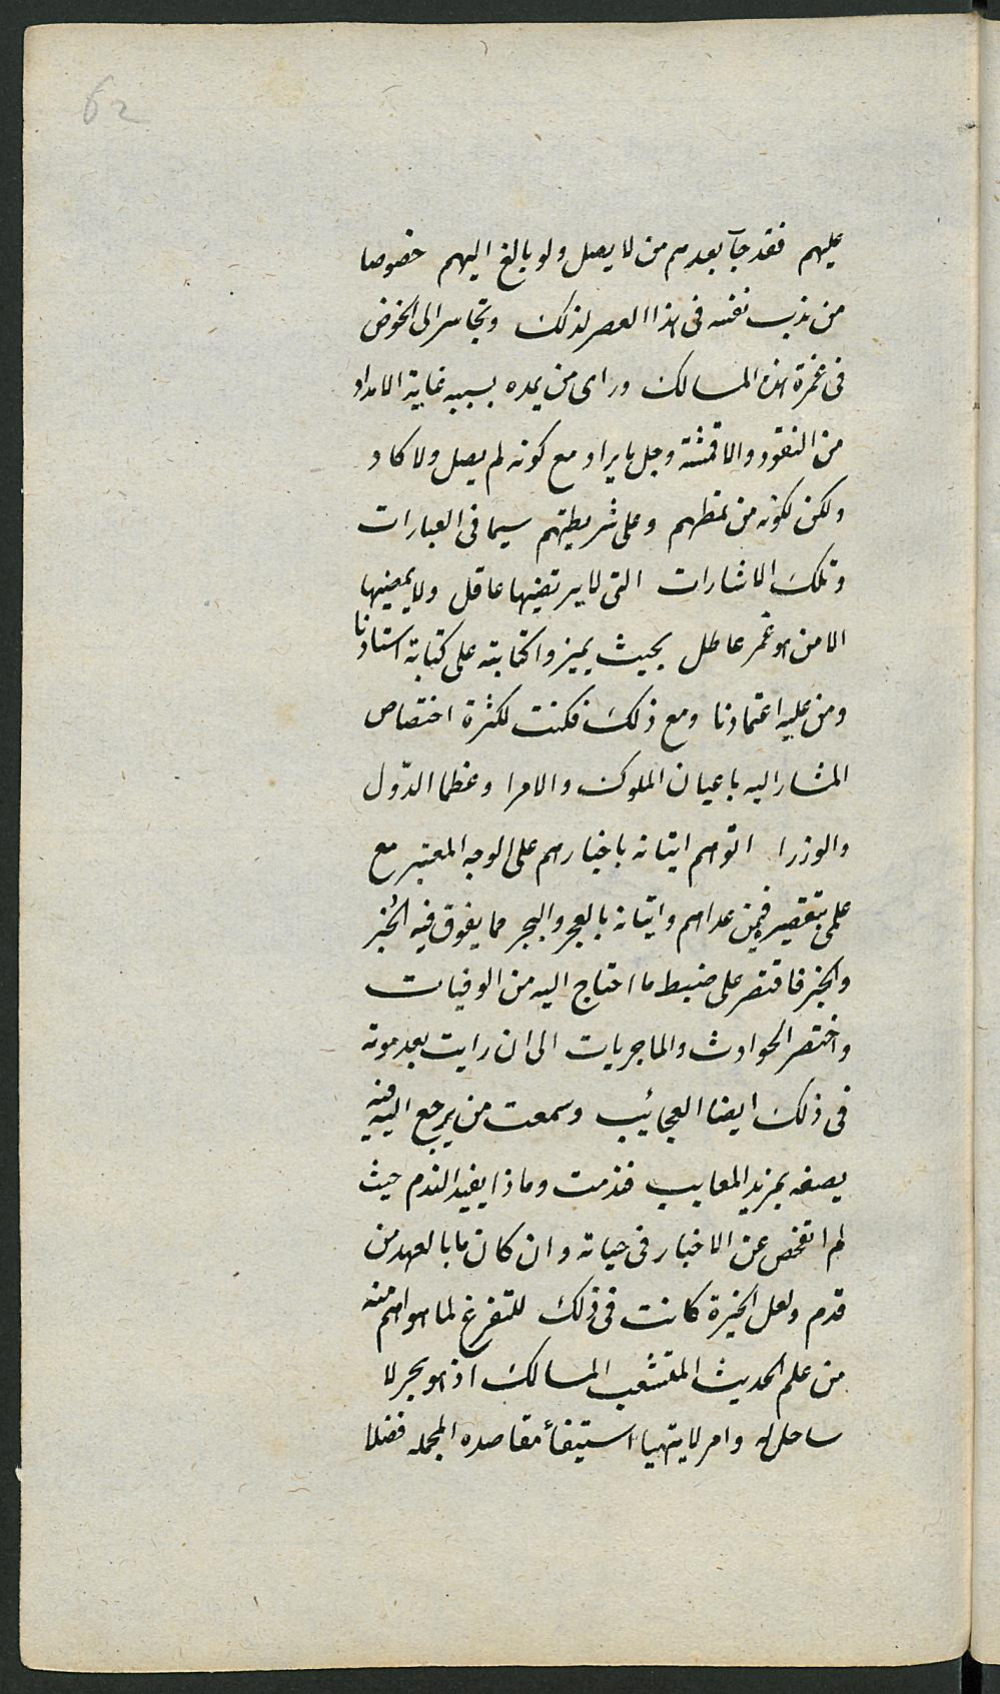 62
عليهم فقد جآ بعدهم من لا يصل ولو بالغ اليهم خصوصا
من ندب نفسه فى هذا العصر لذلك وتجاسر الى الخوض
فى غمرة هذه المسالك وراى من يمده بسببه غاية الامداد
من النقود والاقمشة وجل ما يراد مع كونه لم يصل ولا كاد
ولكن لكونه من نمطهم وعلى شريطتهم سيما فى العبارات
وتلك الاشارات التى لا يرتضيها عاقل ولا يمضيها
الا من هو غمر عاطل بحيث يميزوا كتابته على كتابة استادنا
ومن عليه اعتمادنا ومع ذلك فكنت لكثرة اختصاص
المشار اليه باعيان الملوك والامرا وعظما الدّول
والوزرا اتوهم اتيانه باخبارهم على الوجه المعتبر مع
علمى بتقصيره فيمن عداهم واتيانه بالعجر والبجر مما يفوق فيه الخُبر
والخبر فاقتصر على ضبط ما احتاج اليه من الوفيات
واختصر الحوادث والماجريات الى ان رايت بعد موته
فى ذلك ايضا العجائب وسمعت من يرجع اليه فيه
يصفه بمزيد المعايب فندمت وماذا يفيد الندم حيث
لم اتفحص عن الاخبار فى حياته وان كان ما بالعهد من
قدم ولعل الخيرة كانت فى ذلك للتفرغ لما هو اهم منه
من علم الحديث المتشعب المسالك اذ هو بحر لا
ساحل له وامر لا يتهيا استيفأ مقاصده المجمله فضلا